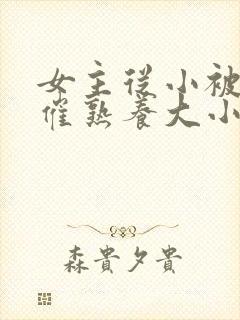 女主從小被
催熟養大小
森貴夕貴